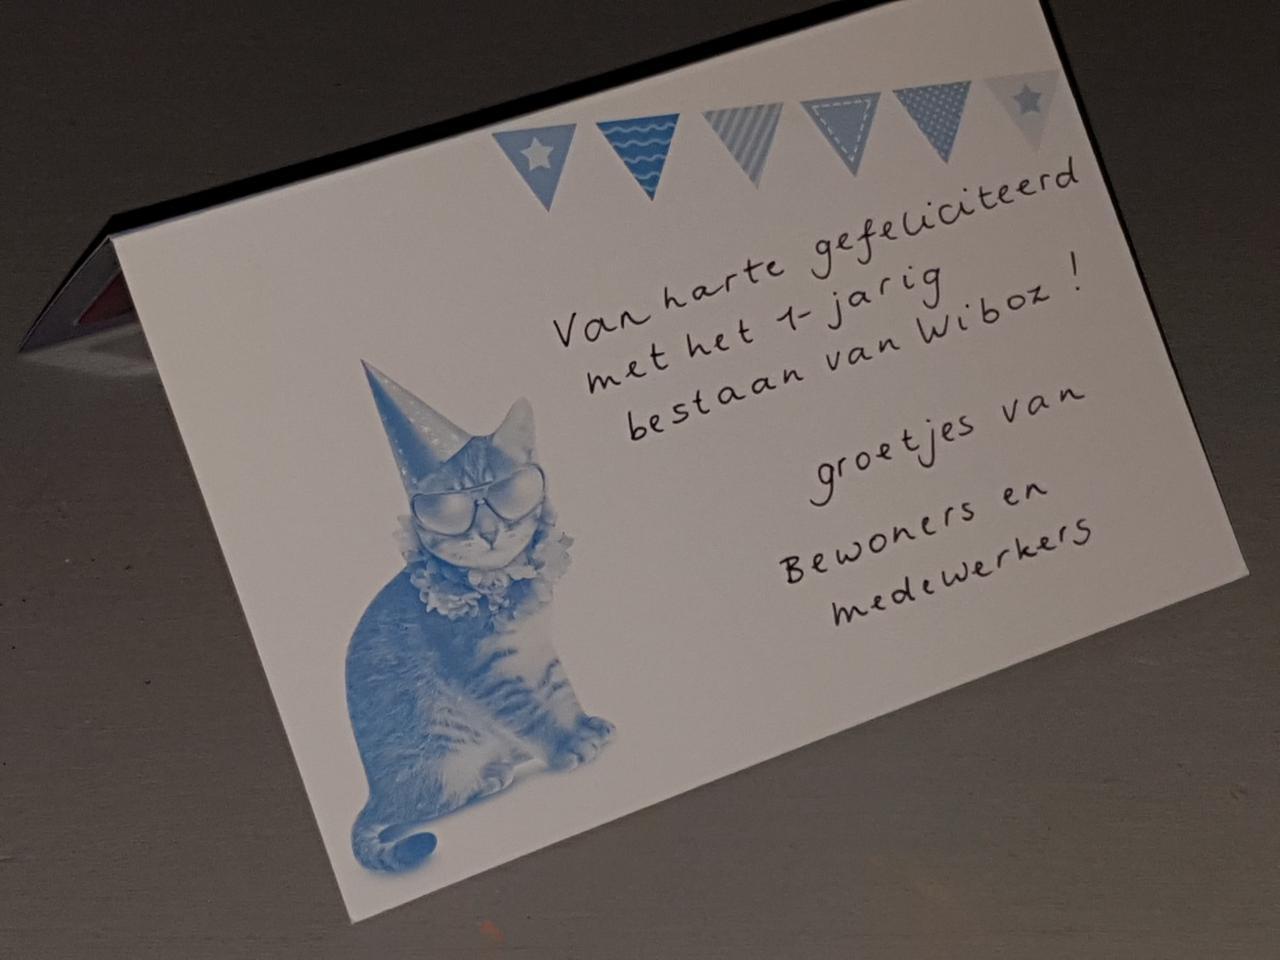 Van harte gefeliciteerd
met het 1-jarig
bestaan van Wiboz!
groetjes van
Bewoners en
medewerkers